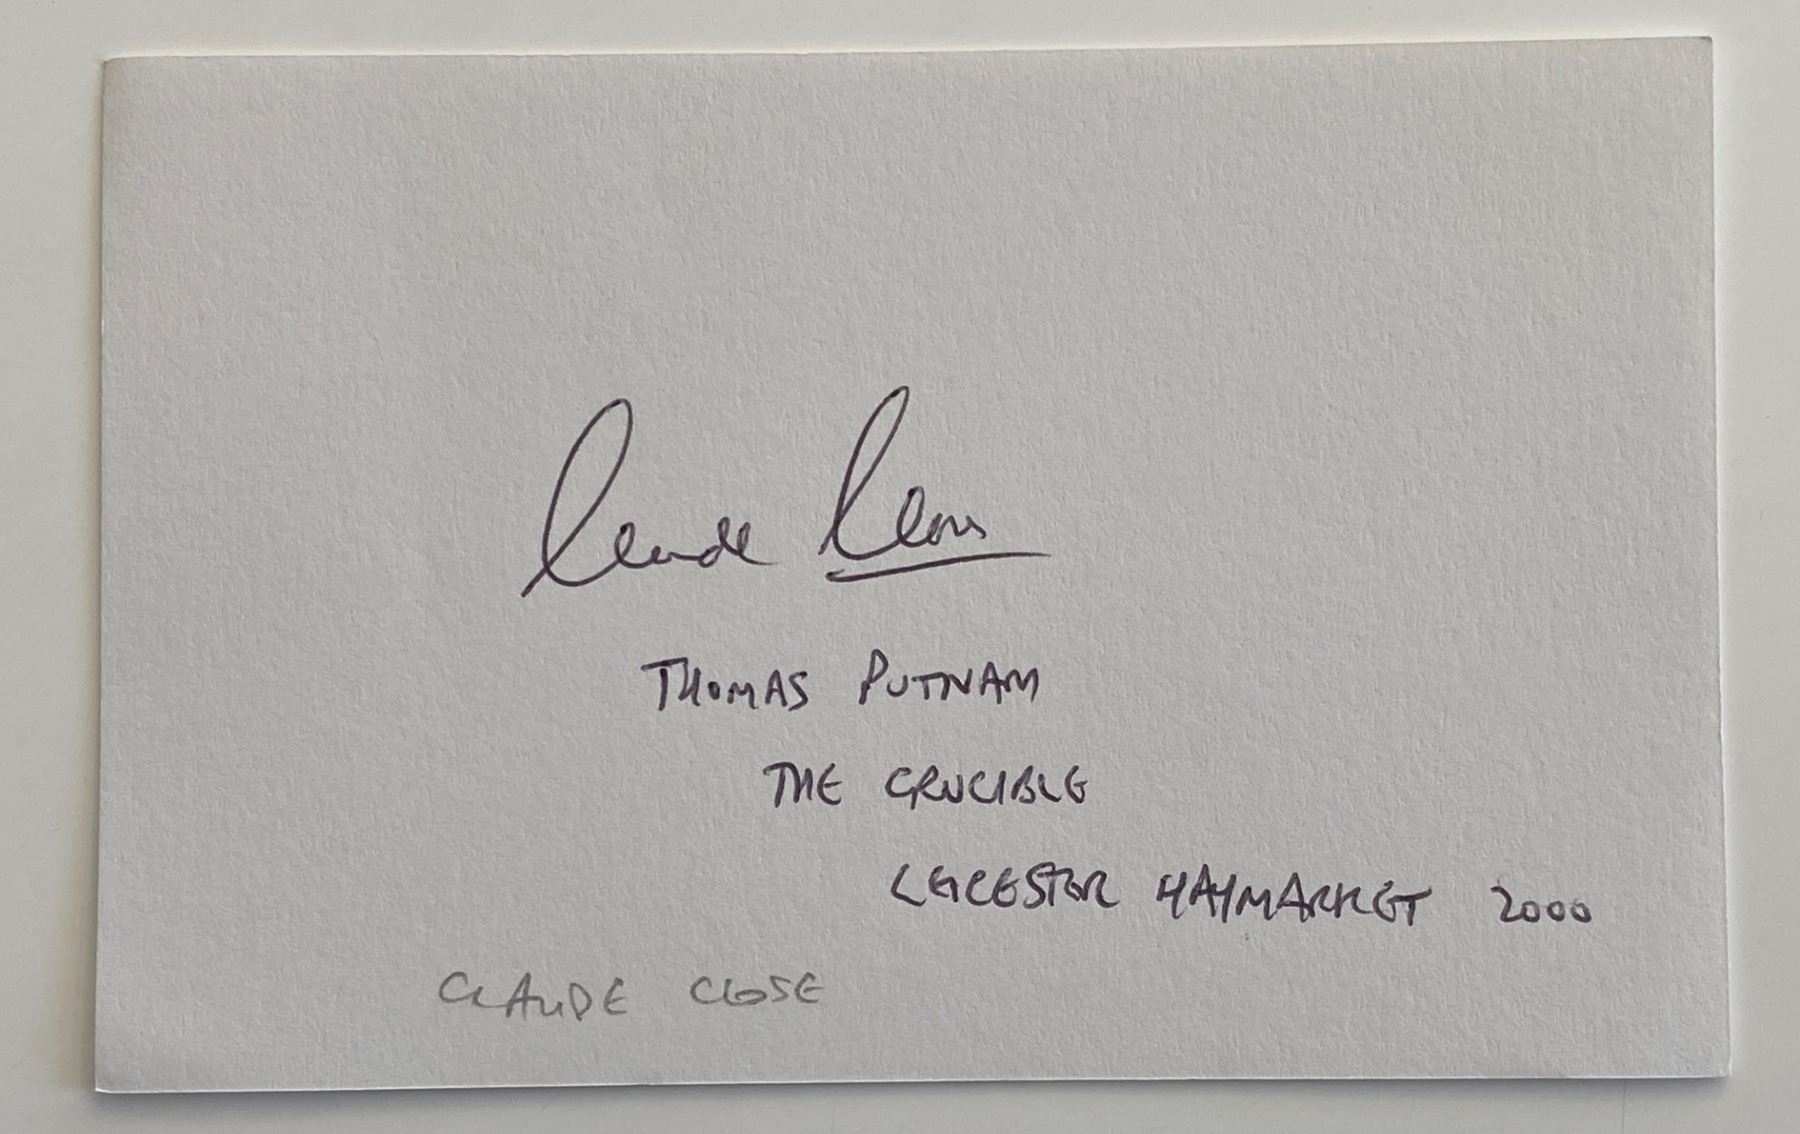 Claude Close
THOMAS PUTNAM
THE CRUCIBLE
LEICESTER HAYMARKET 2000
CLAUDE CLOSE